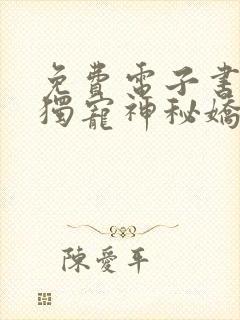 免費電子書
獨寵神秘嬌
陳愛平